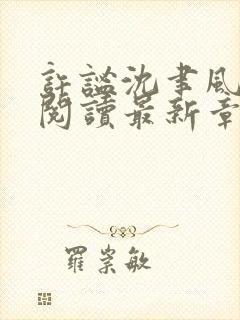 許謐沈聿風
閱讀最新章
羅崇敏